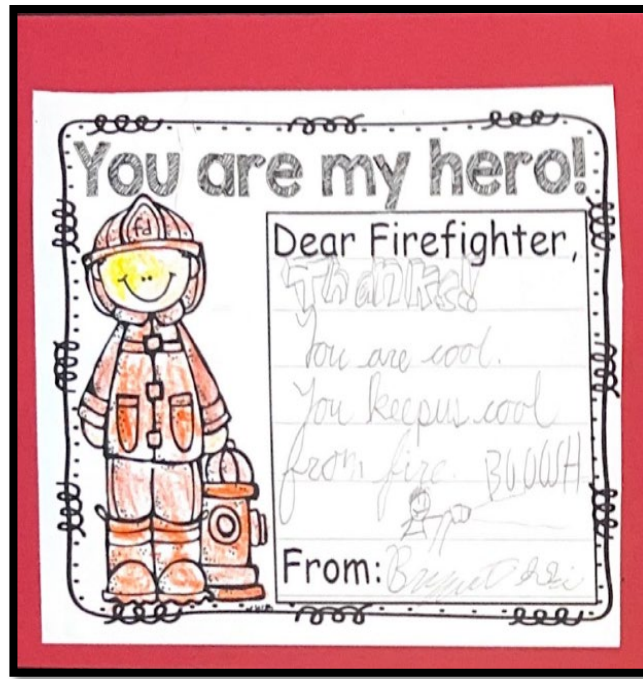 You are my hero!
fd
Dear Firefighter,
Thanks!
You are cool.
You keep us cool
from fire. BOOWH
From: